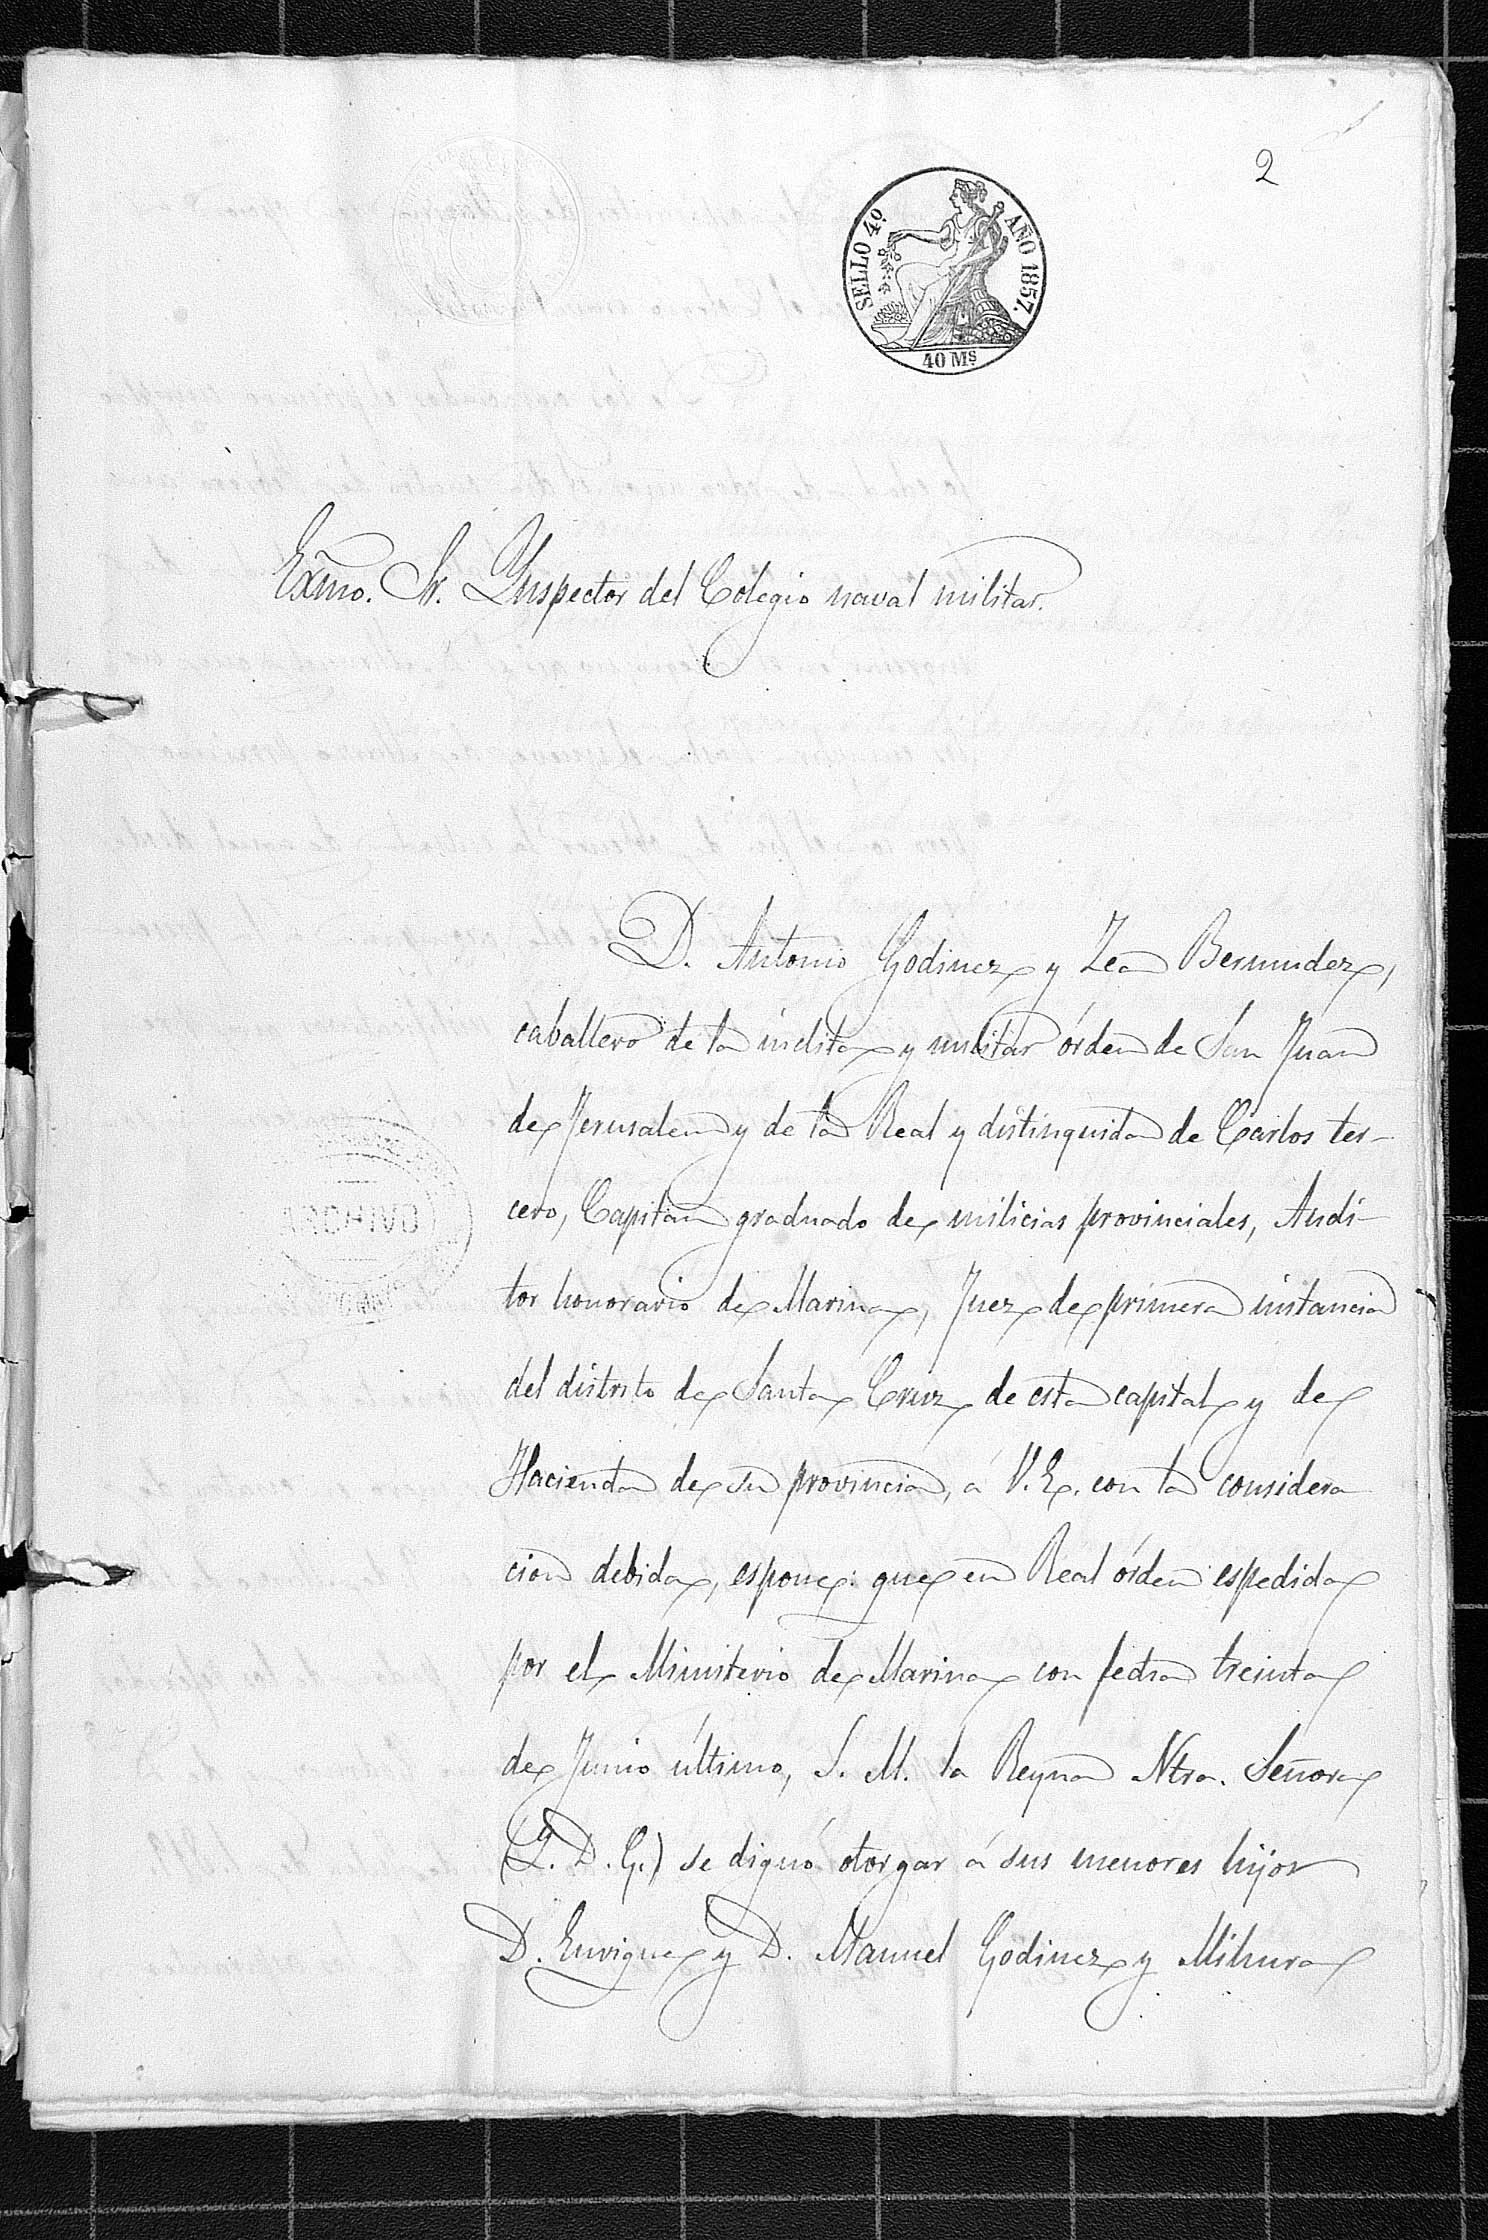 2
SELLO 4º AÑO 1857.
40 Ms
Exmo. Sr. Ynspector del Colegio naval militar.
D. Antonio Godinez y Zea Bermudez,
caballero de la ínclita y militar órden de San Juan
de Jerusalen y de la Real y distinguida de Cárlos ter-
cero, Capitan graduado de milicias provinciales, Audi-
tor honorario de Marina, Juez de primera instancia
del distrito de Santa Cruz de esta capital y de
Hacienda de su provincia, á V. E. con la considera
cion debida, espone: que en Real órden espedida
por el Ministerio de Marina con fecha treinta
de Junio último, S. M. la Reyna Ntra. Señora
(Q. D. G.) se dignó otorgar á sus menores hijos
D. Enrique y D. Manuel Godinez y Mihura